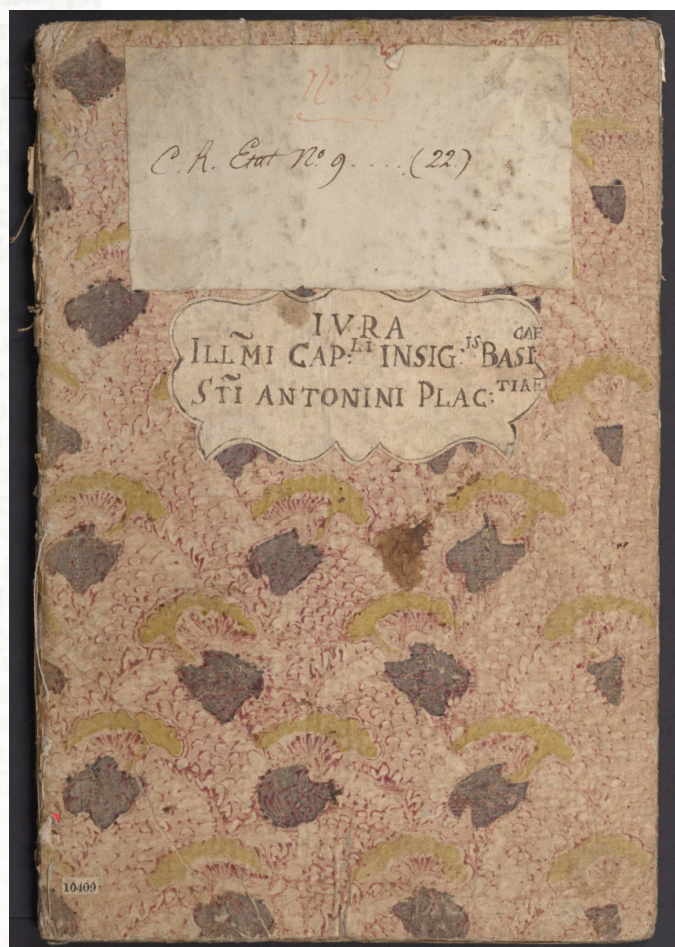 No: 23
C. R. Etat No. 9 . . . . (22)
IVRA
ILLM̃I CAP:LI INSIG:IS BASI CAE
STI̴ ANTONINI PLAC:TIAE
10409